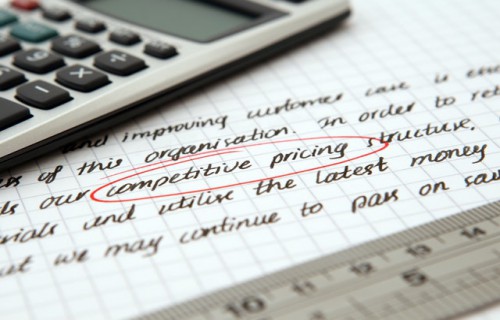 and improving customer care is
of this organisation. In order to
our competitive pricing structure,
and utilise the latest money
we may continue to pass on
10 11 12 13 14
5